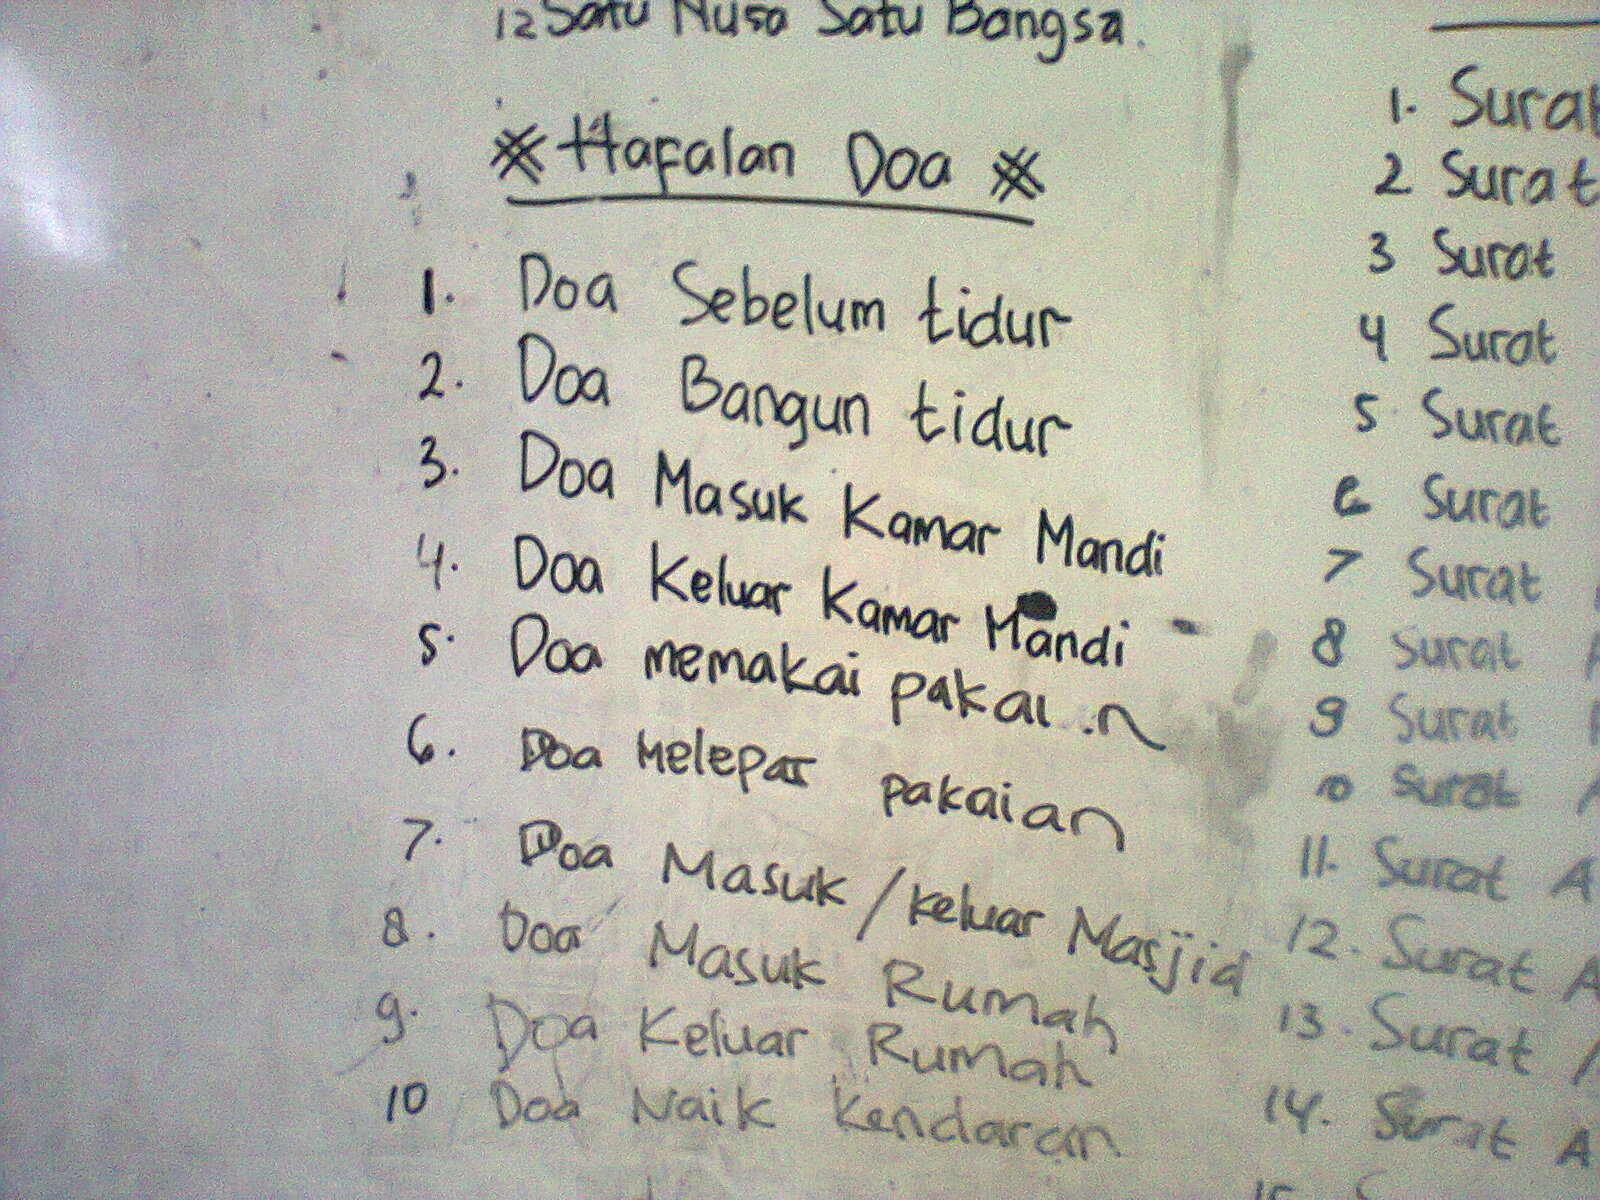 12 Satu Nusa Satu Bangsa.
※ Hafalan Doa ※
1. Doa Sebelum tidur
2. Doa Bangun tidur
3. Doa Masuk Kamar Mandi
4. Doa Keluar Kamar Mandi
5. Doa memakai pakai..n
6. Doa Melepas pakaian
7. Doa Masuk / keluar Masjid
8. Doa Masuk Rumah
9. Doa Keluar Rumah
10 Doa Naik Kendaran
1. Surat
2 Surat
3 Surat
4 Surat
5 Surat
6 Surat
7 Surat
8 Surat
9 Surat
10 Surat
11. Surat A
12. Surat A
13. Surat
14. Surat A
15.